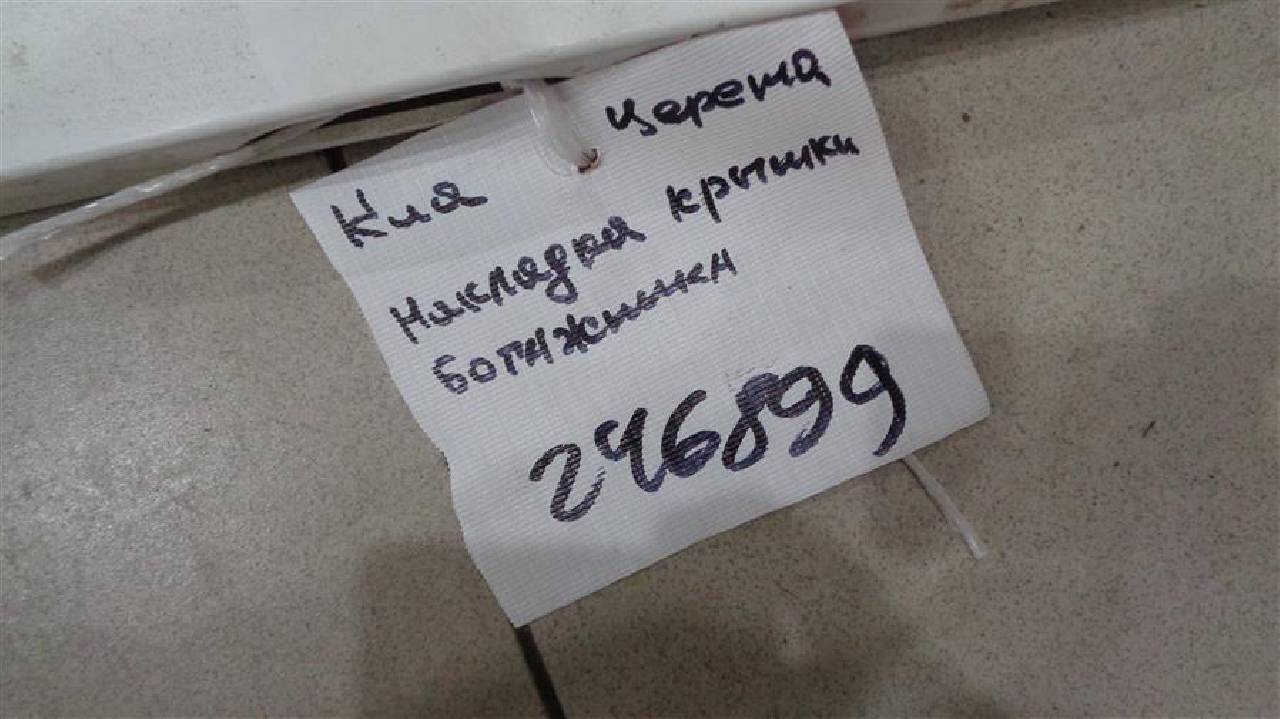 Киа Церето
Накладка крышки
богажныка
246899